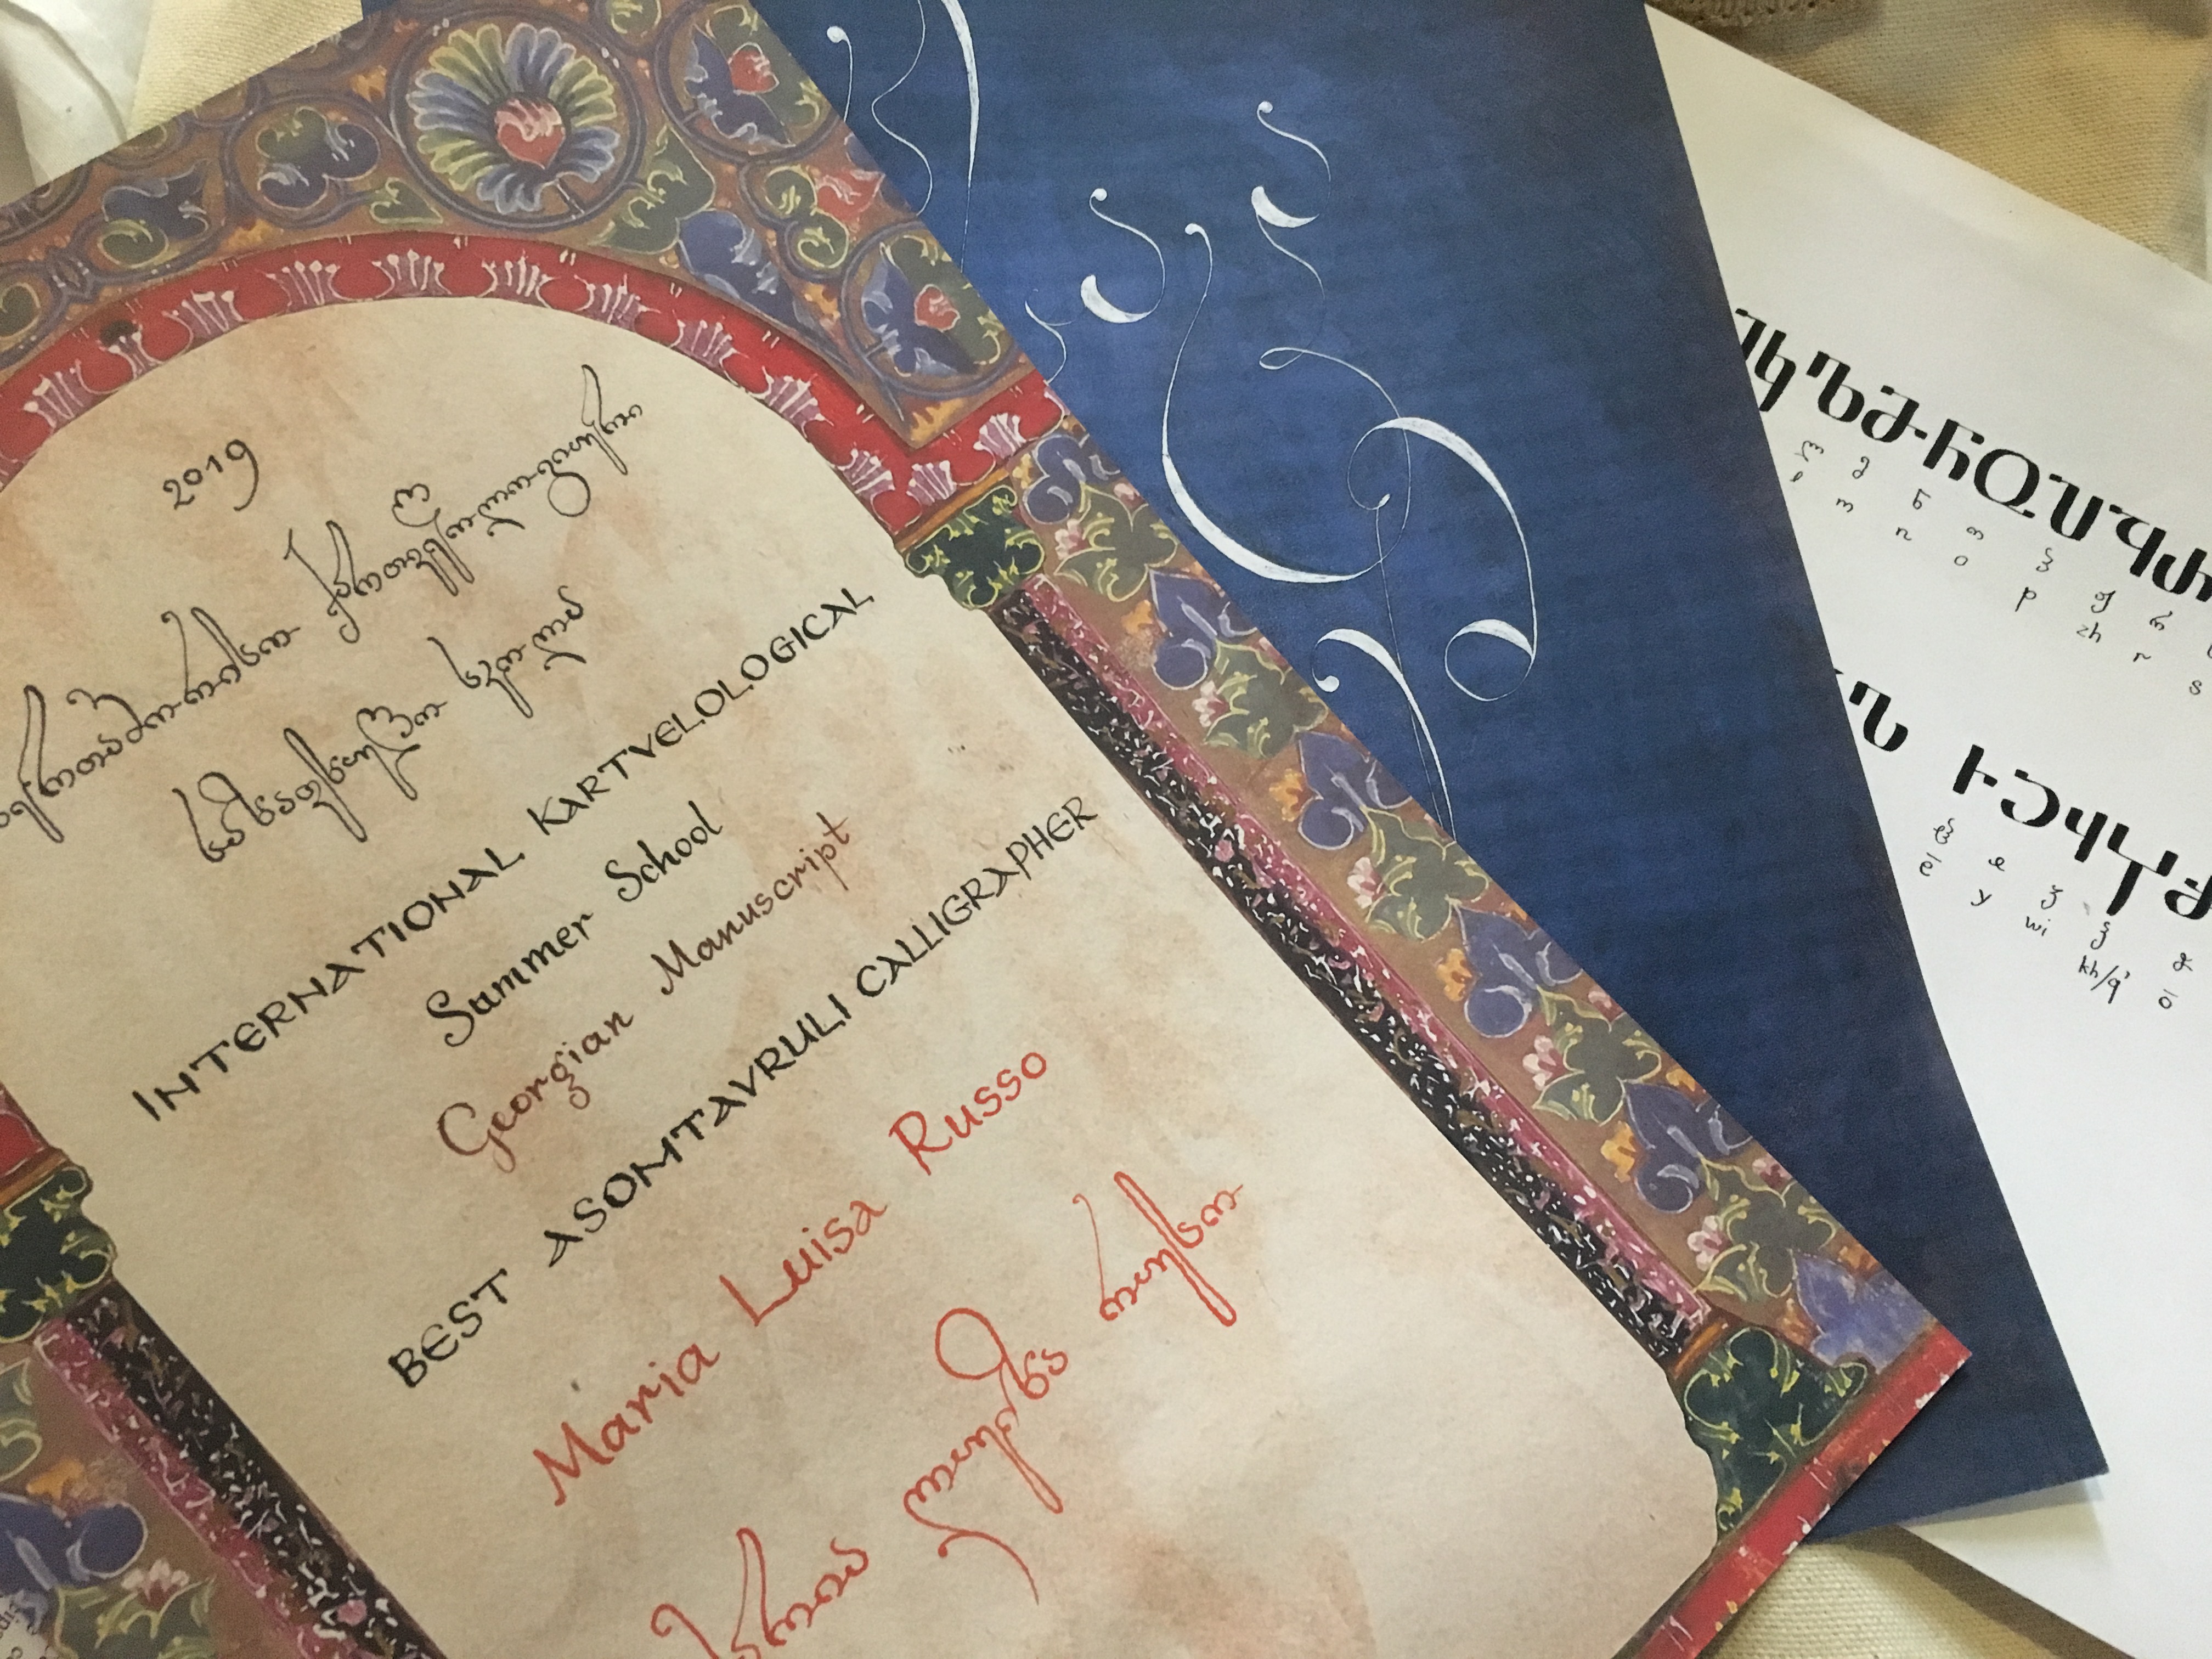 2019
აერთაშორისო ქართველოლოგიური
საზაფხულო სკოლა
INTERNATIONAL KARTVELOLOGICAL
Summer School
Georgian Manuscript
BEST ASOMTAVRULI CALLIGRAPHER
Maria Luisa Russo
მარია ლუიზა რუსო
ლ მ ნ ო პ ჟ რ
l m n o p zh r s
ჱ ჲ ჳ ჴ ჵ
ē y wi kh/q' ō